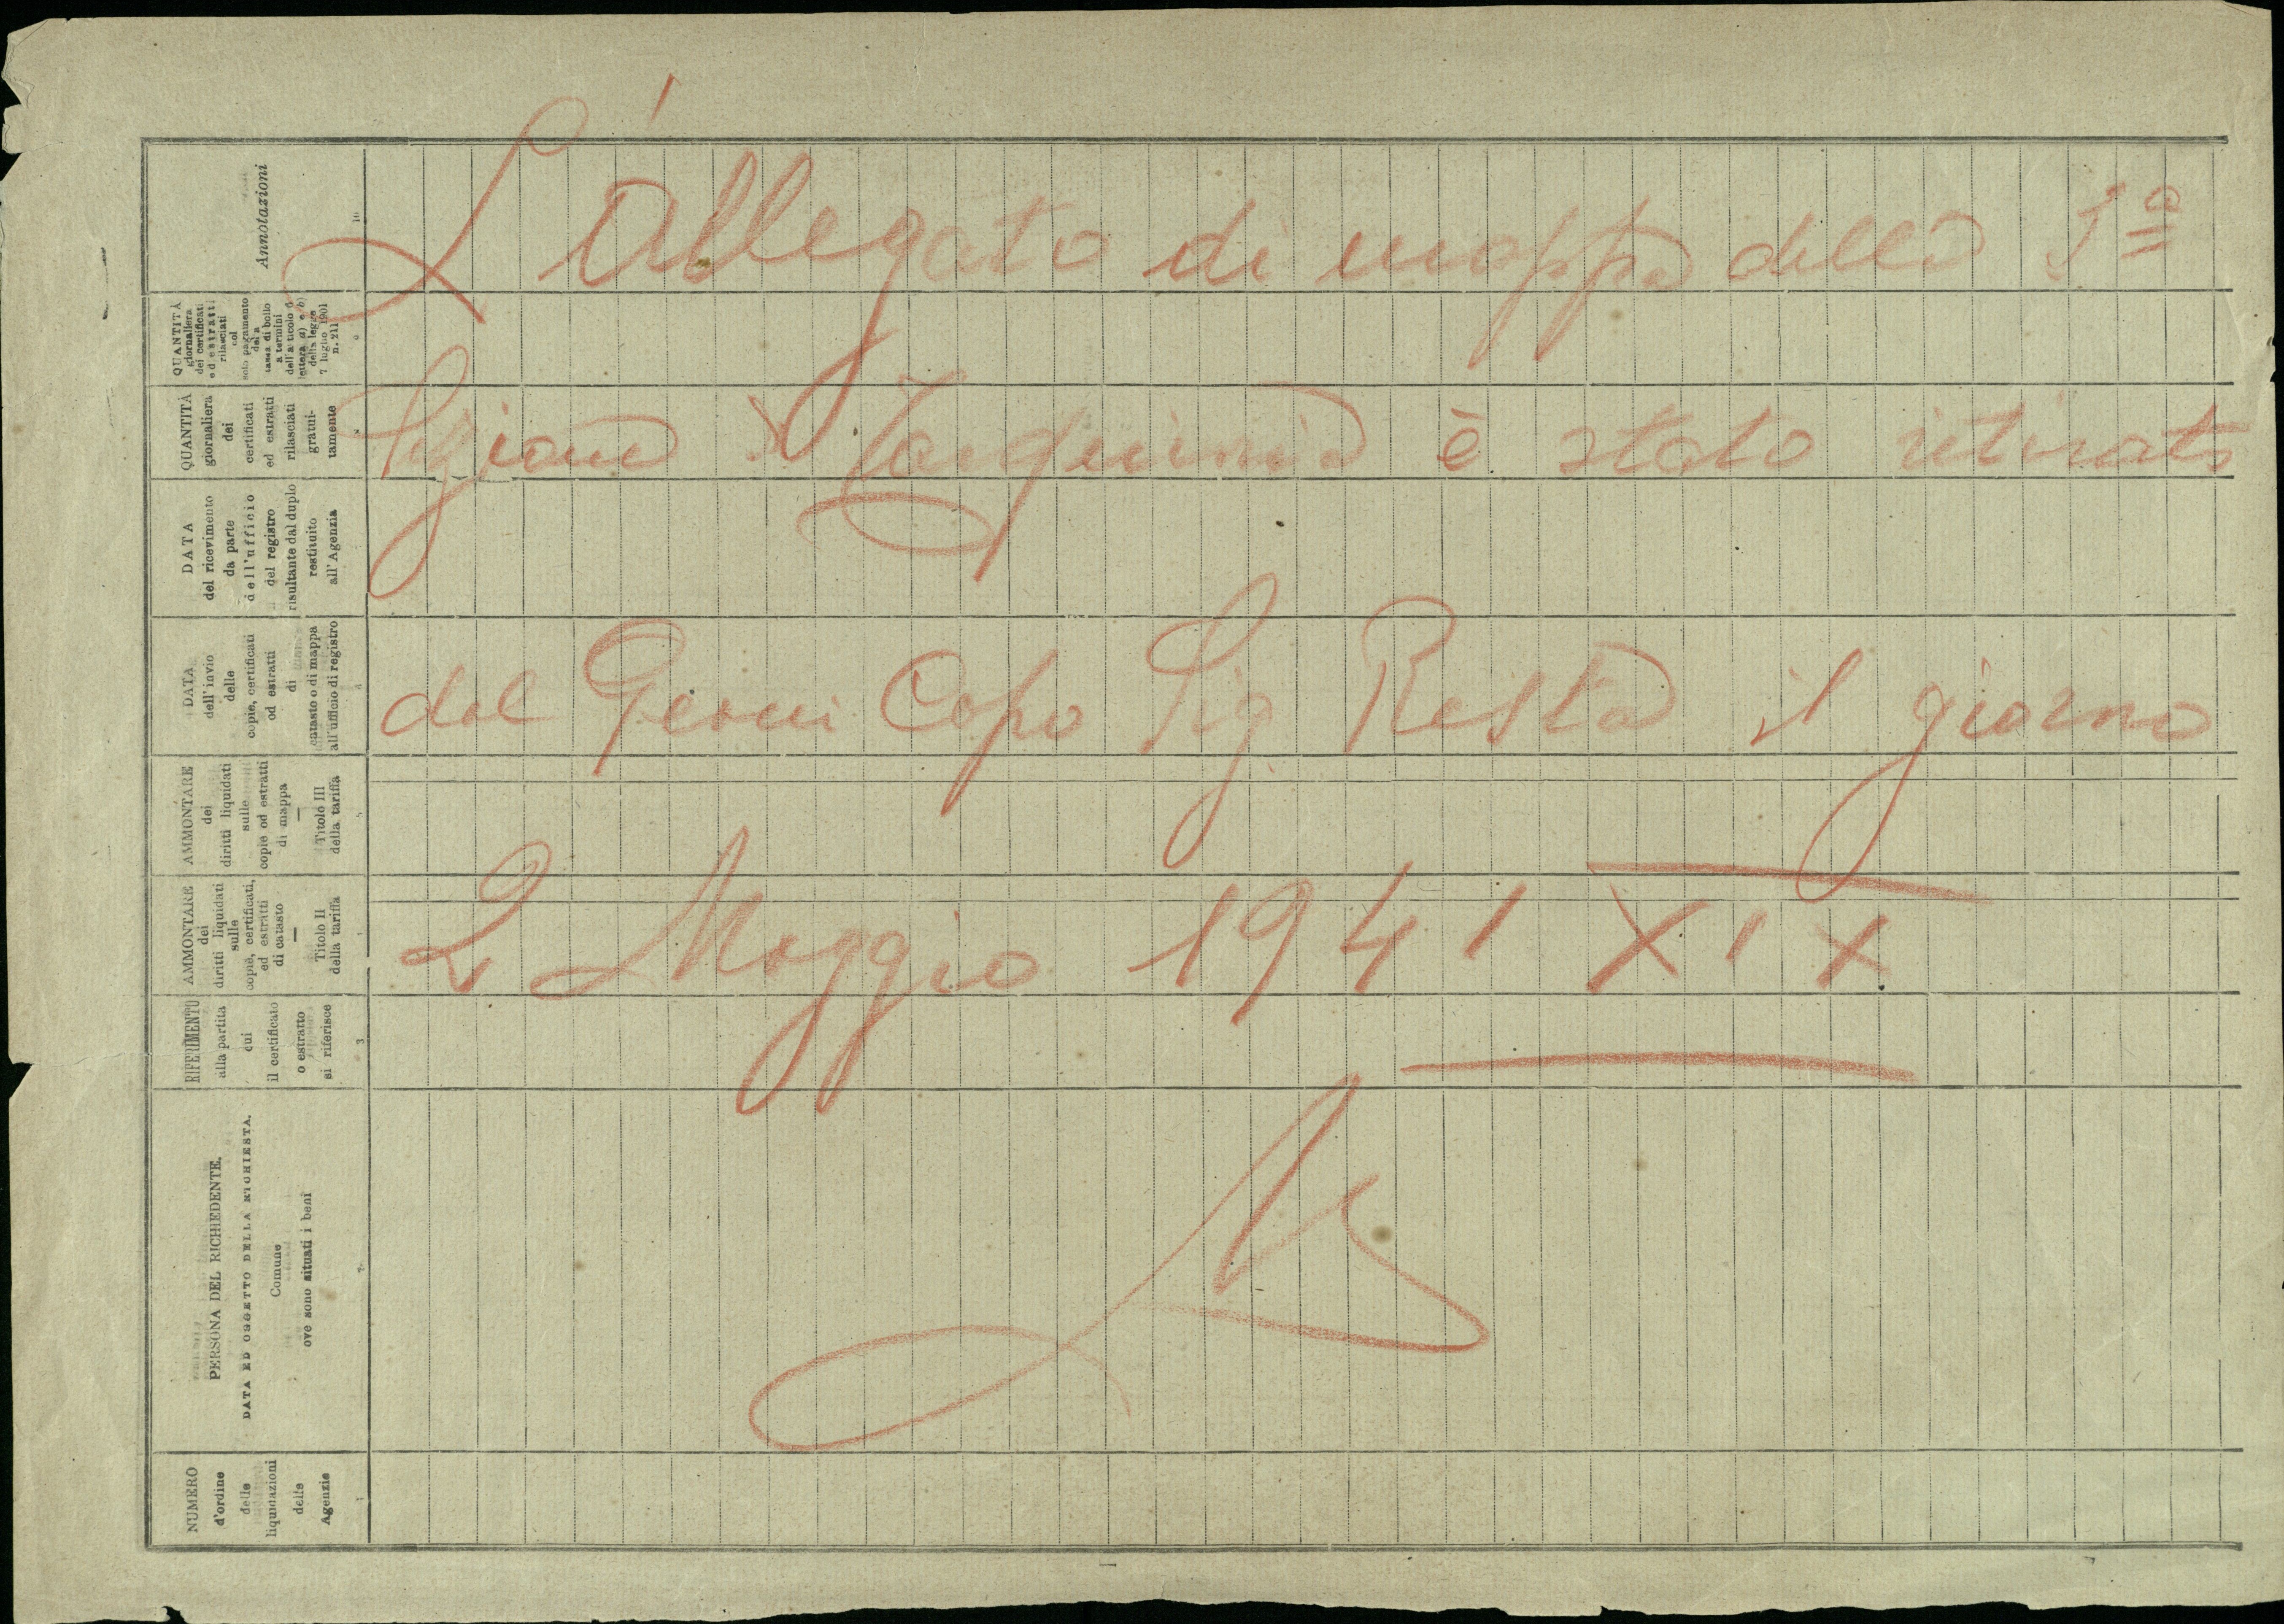 L'allegato di mappa della Iª
Sezione di Tarquinia è stato ritirato
dal Geom. Capo Sig. Resta il giorno
2 Maggio 1941 XIX
Annotazioni
10
QUANTITÀ
giornaliera
dei certificati
ed estratti
rilasciati
col
solo pagamento
della
tassa di bollo
a termini
dell'articolo 6
lettera a) e b)
della legge
7 luglio 1901
n. 211
9
QUANTITÀ
giornaliera
dei
certificati
ed estratti
rilasciati
gratui-
tamente
8
DATA
del ricevimento
da parte
dell'ufficio
del registro
risultante dal duplo
restituito
all'Agenzia
DATA
dell'invio
delle
copie, certificati
od estratti
di
catasto o di mappa
all'ufficio di registro
AMMONTARE
dei
diritti liquidati
sulle
copie od estratti
di mappa
—
Titolo III
della tariffa
AMMONTARE
dei
diritti liquidati
sulle
copie, certificati,
ed estratti
di catasto
—
Titolo II
della tariffa
RIFERIMENTO
alla partita
cui
il certificato
o estratto
si riferisce
3
PERSONA DEL RICHIEDENTE.
DATA ED OGGETTO DELLA RICHIESTA.
Comune
ove sono situati i beni
2
NUMERO
d'ordine
delle
liquidazioni
delle
Agenzie
1